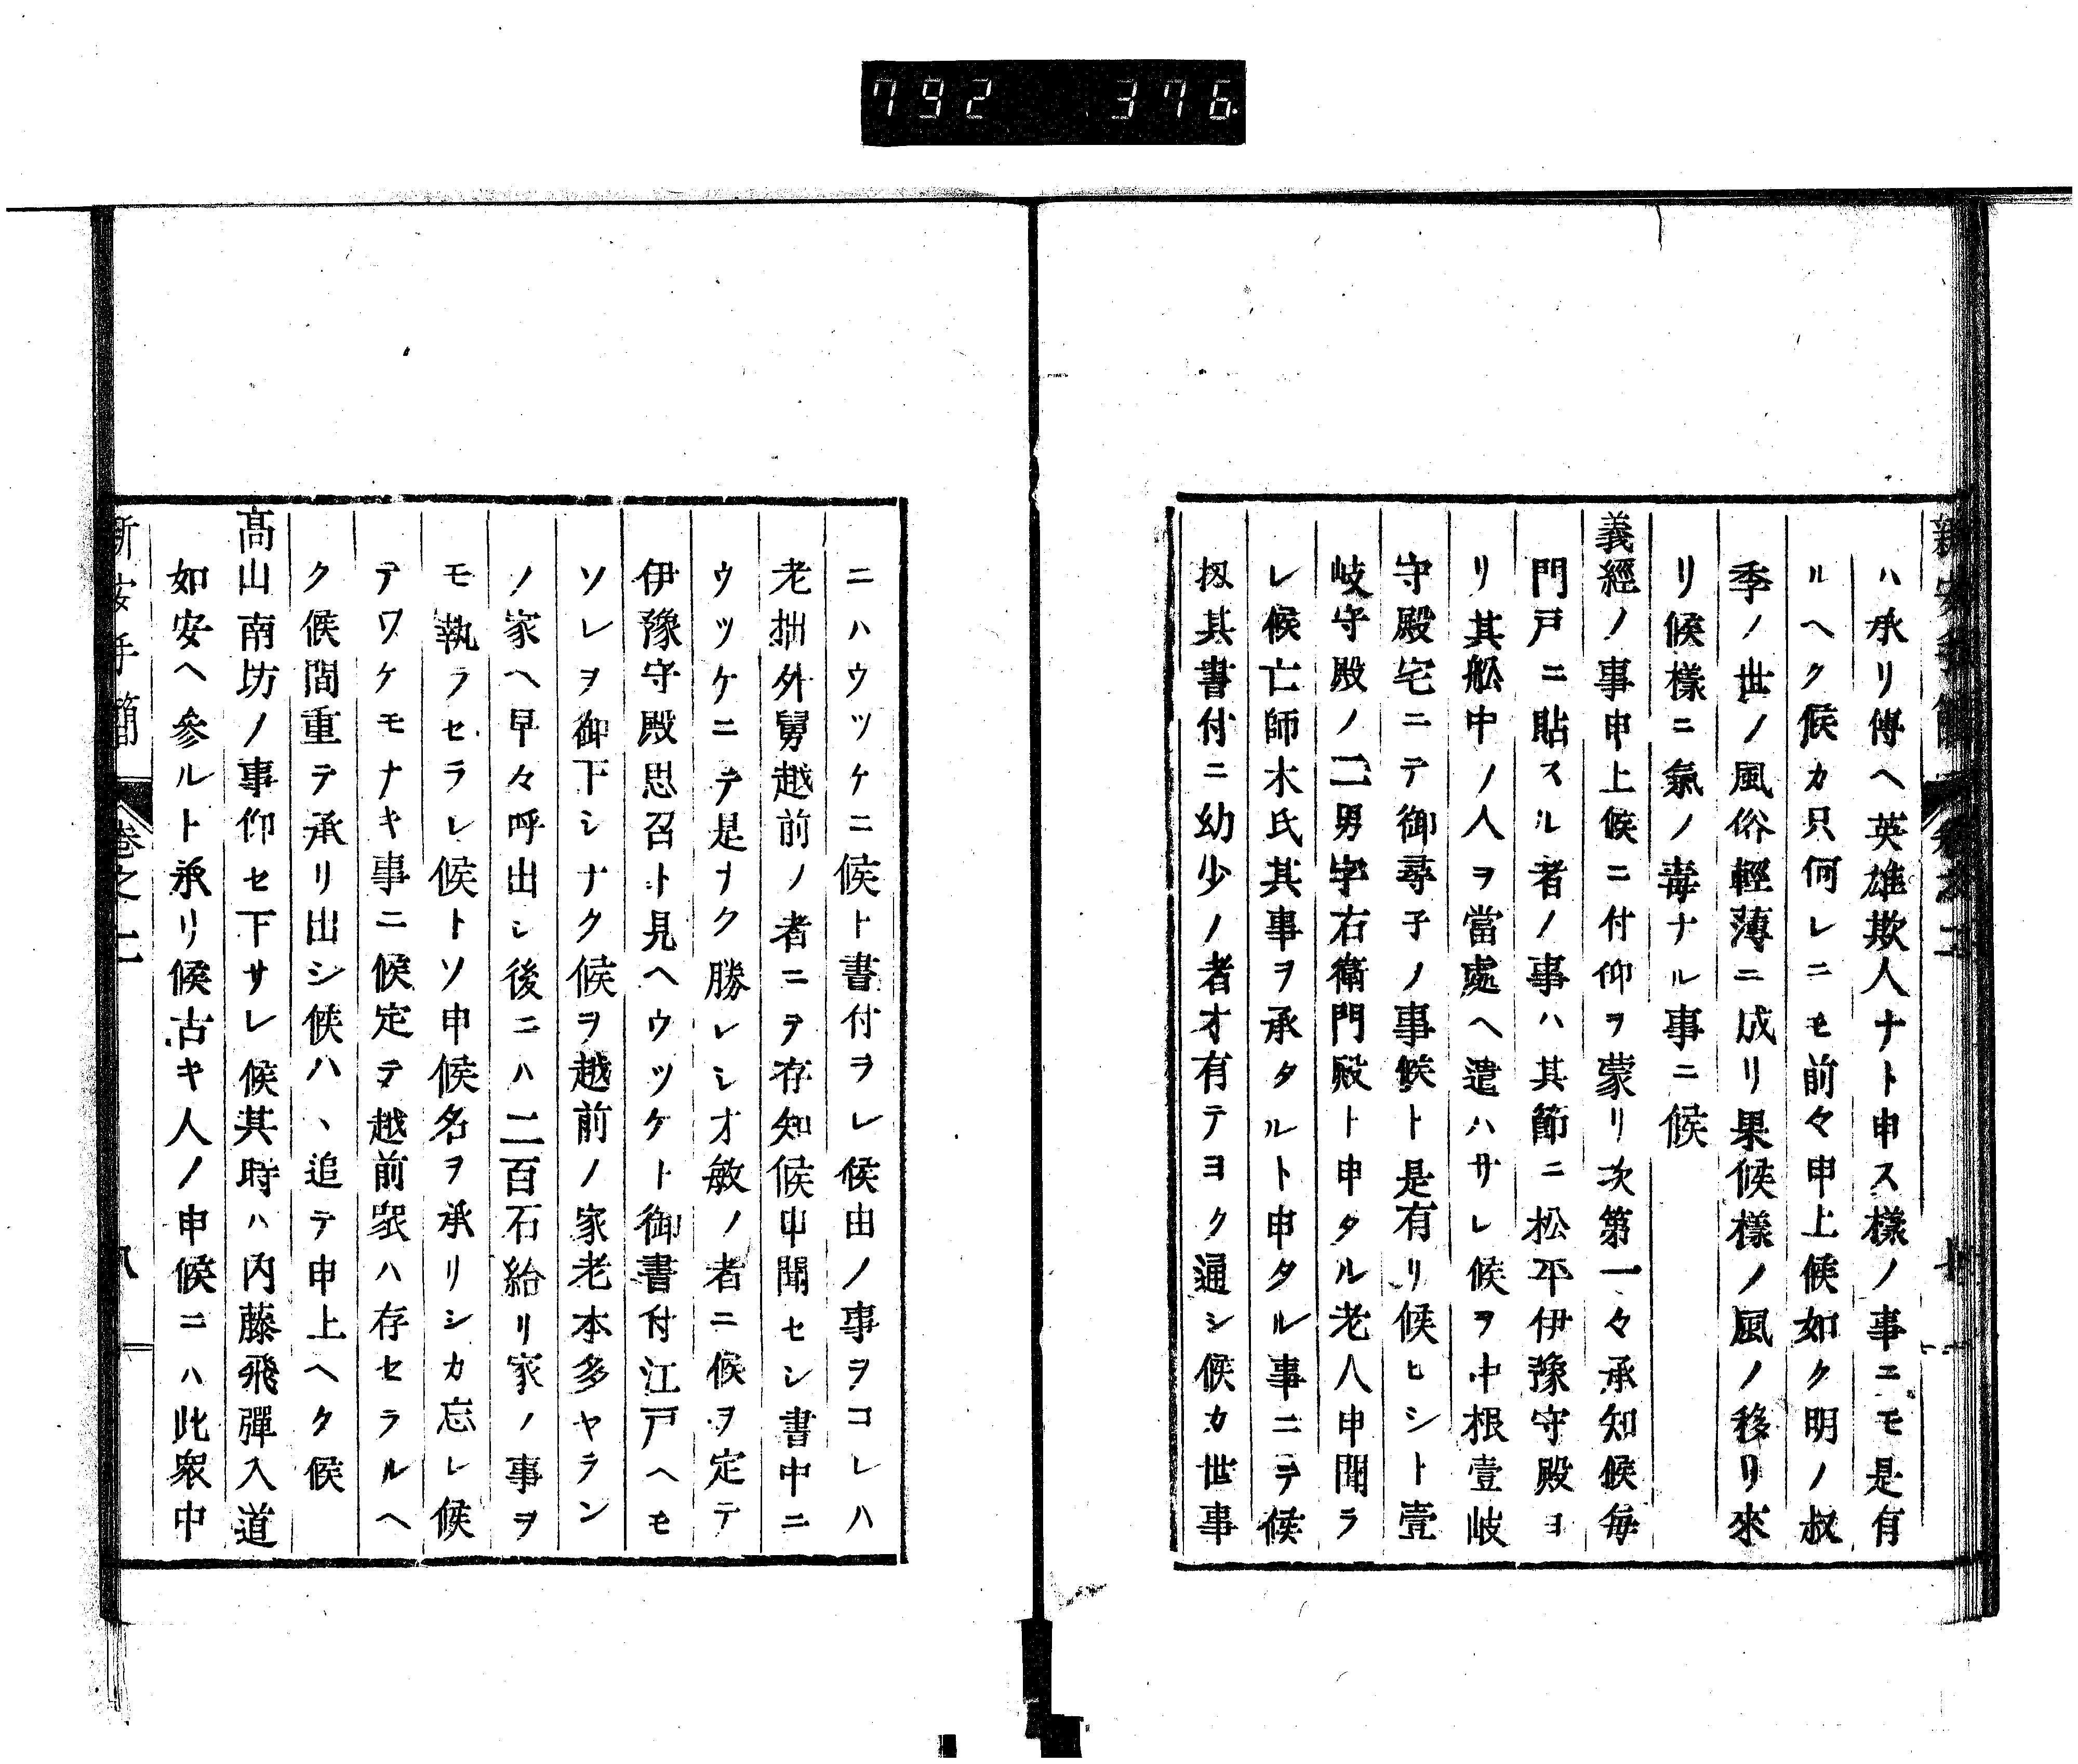 792 376
ハ承リ傳ヘ英雄欺人ナト申ス樣ノ事ニモ是有
ルヘク候カ只何レニモ前々申上候如ク明ノ叔
季ノ世ノ風俗輕薄ニ成リ果候樣ノ風ノ移リ來
リ候樣ニ氣ノ毒ナル事ニ候
義經ノ事申上候ニ付仰ヲ蒙リ次第一々承知候毎
門戸ニ貼スル者ノ事ハ其節ニ松平伊豫守殿ヨ
リ其舩中ノ人ヲ當處ヘ遣ハサレ候ヲ中根壹岐
守殿宅ニテ御尋子ノ事候ト是有リ候ヒシト壹
岐守殿ノ二男宇右衛門殿ト申タル老人申聞ラ
レ候亡師木氏其事ヲ承タルト申タル事ニテ候
扨其書付ニ幼少ノ者才有テヨク通シ候カ世事
ニハウツケニ候ト書付ヲレ候由ノ事ヲコレハ
老拙外舅越前ノ者ニテ存知候申聞セシ書中ニ
ウツケニテ是ナク勝レシ才敏ノ者ニ候ヲ定テ
伊豫守殿思召ト見ヘウツケト御書付江戸ヘモ
ソレヲ御下シナク候ヲ越前ノ家老本多ヤラン
ノ家ヘ早々呼出シ後ニハ二百石給リ家ノ事ヲ
モ執ラセラレ候トソ申候名ヲ承リシカ忘レ候
テワケモナキ事ニ候定テ越前衆ハ存セラルヘ
ク候間重テ承リ出シ候ハヽ追テ申上ヘク候
髙山南坊ノ事仰セ下サレ候其時ハ内藤飛彈入道
如安ヘ參ルト承リ候古キ人ノ申候ニハ此衆中
新安手簡 卷之二 八